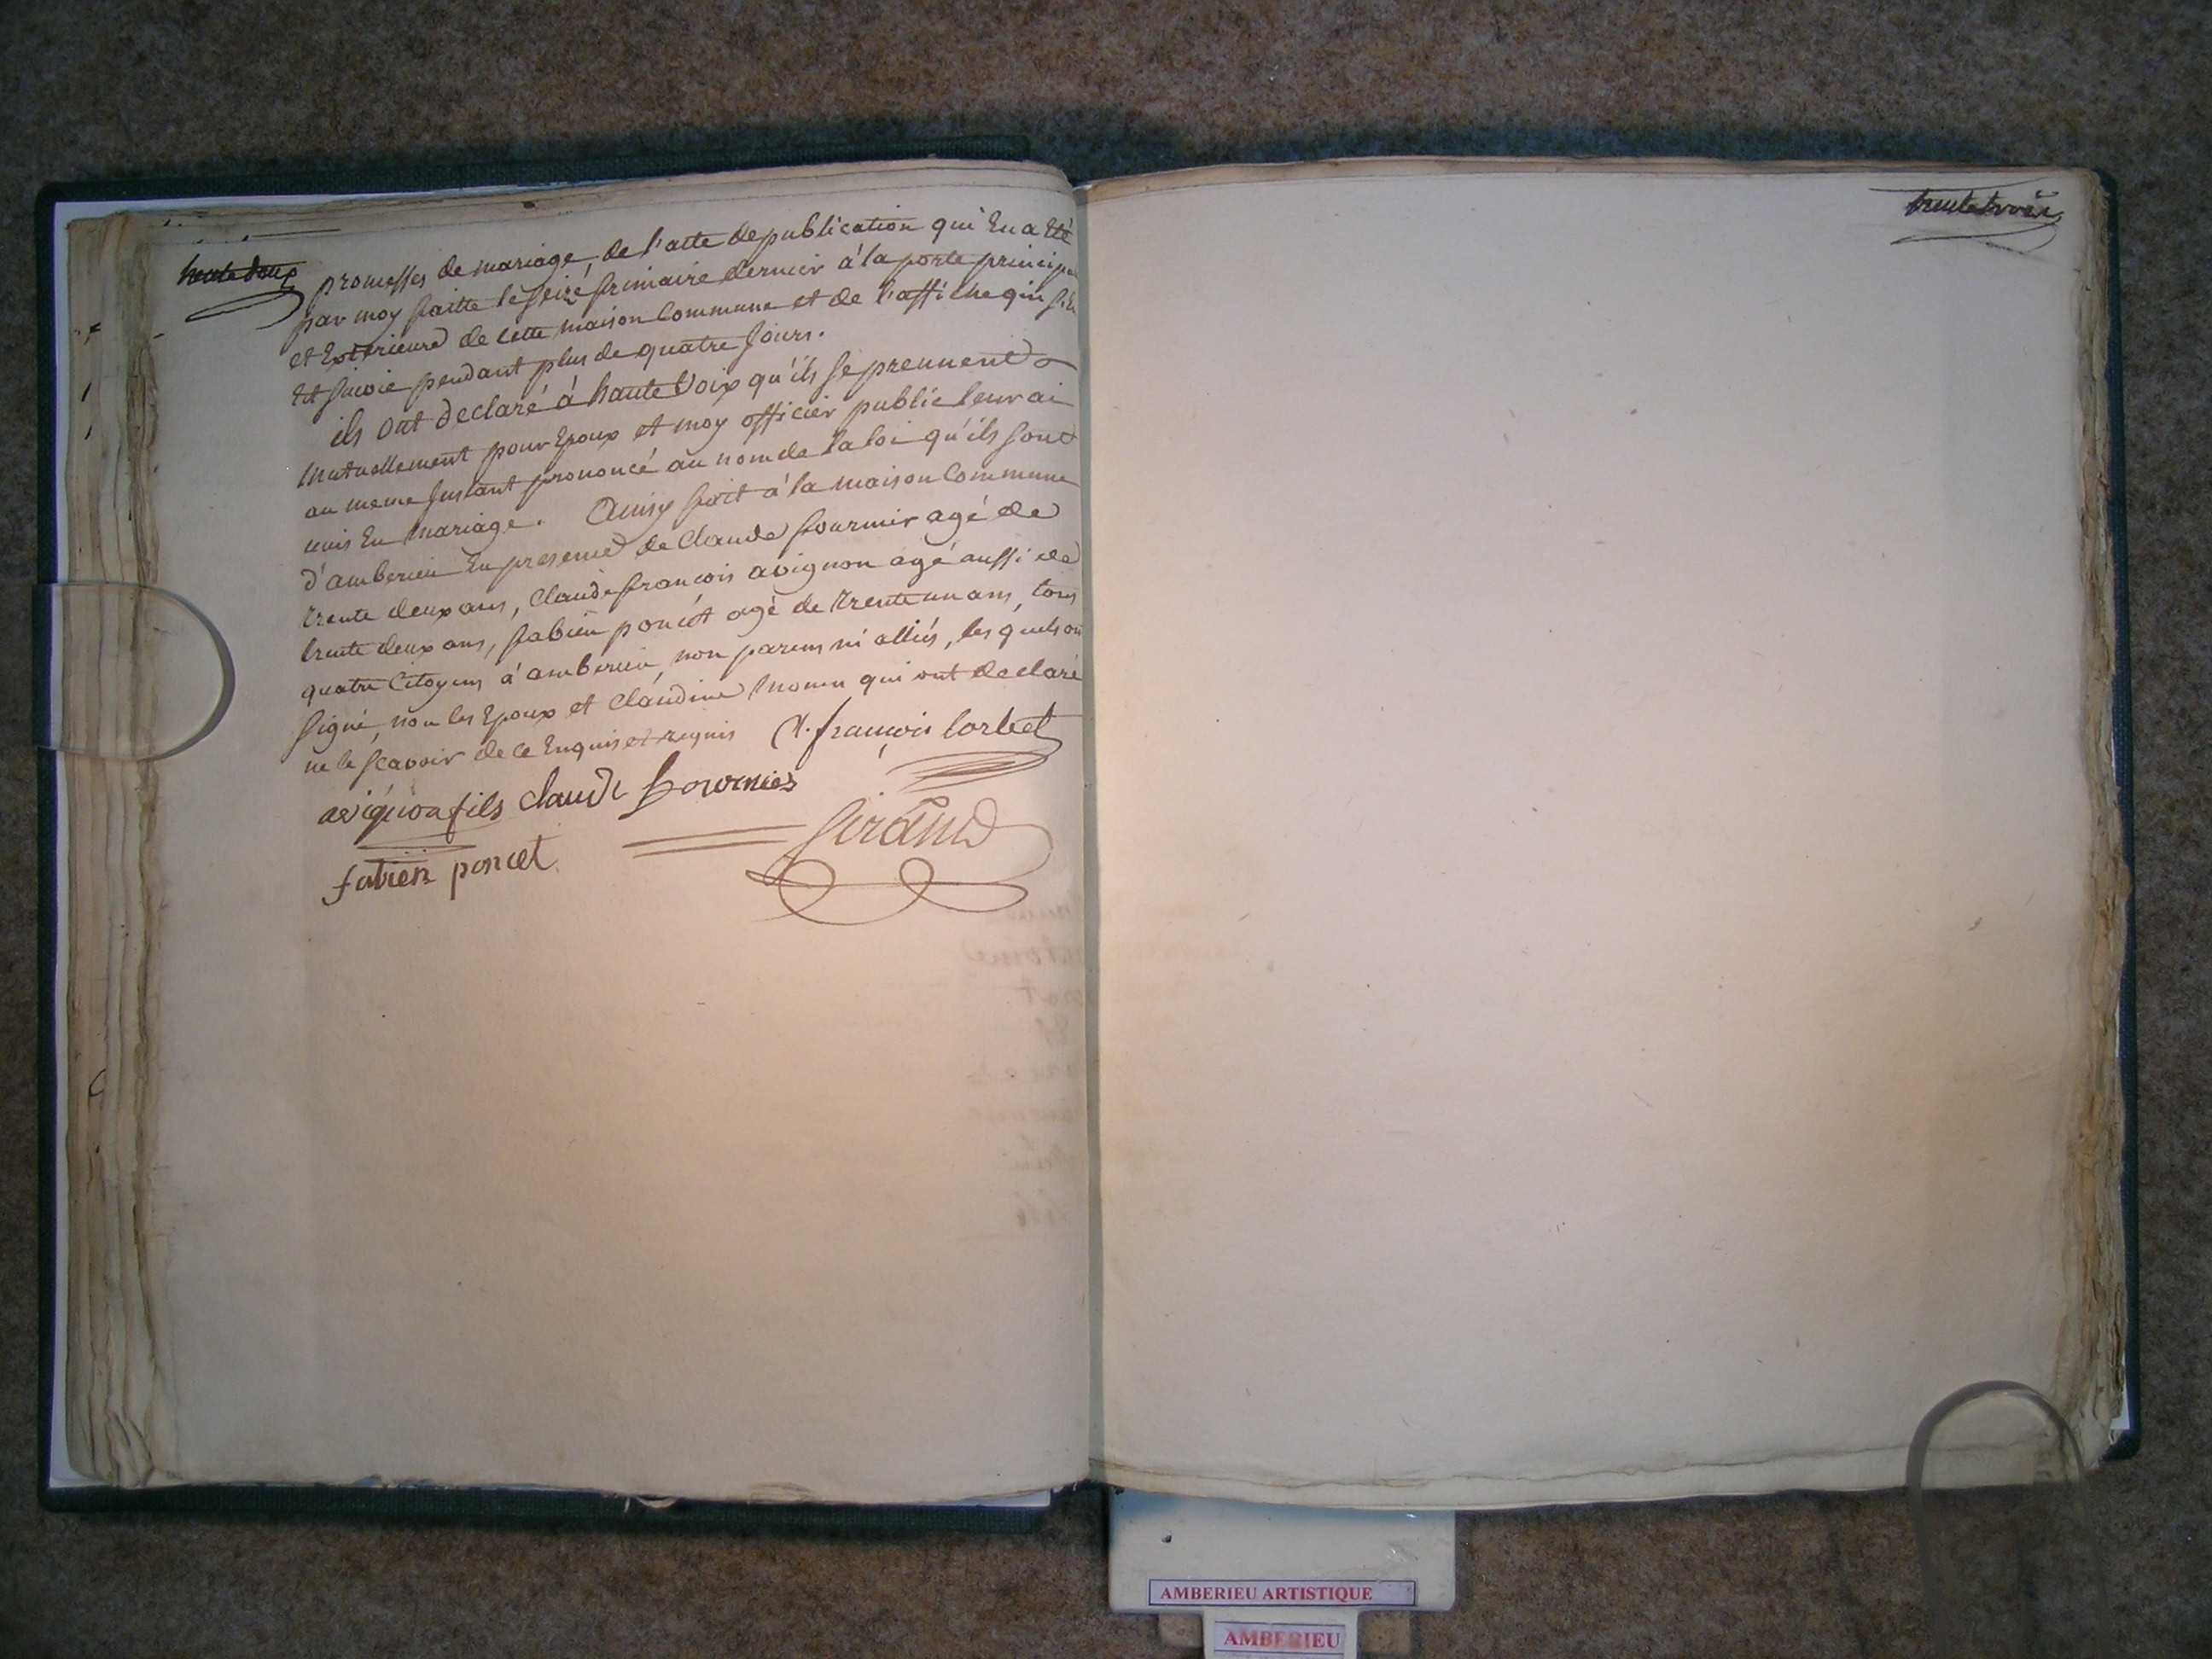 trente deux
promesses de mariage, de l'acte de publication qui En a Eté
par moy faitte le seize frimaire dernier à la porte principa
et Exterieure de cette maison Commune et de l'affiche qui
Et suivie pendant plus de quatre Jours.
ils ont declaré à haute voix qu'ils se prennent
Mutuellement pour Epoux et moy officier public leur ai
au meme Instant prononcé au nom de la loi qu'ils sont
unis En Mariage. Ainsy fait à la maison Commune
d'amberieu En presence de Claude fournier agé de
trente deux ans, Claude françois avignon agé aussi de
trente deux ans, fabien poncet agé de trente un ans, tous
quatre Citoyens à amberieu, non parens ni alliés, les quels on
signé, non les Epoux et Claudine Monin qui ont declaré
ne le scavoir de ce Enquis et requis Cl. françois Corbet
avignon fils Claude fournier
Girand
fabien poncet
trente trois
AMBERIEU ARTISTIQUE
AMBERIEU